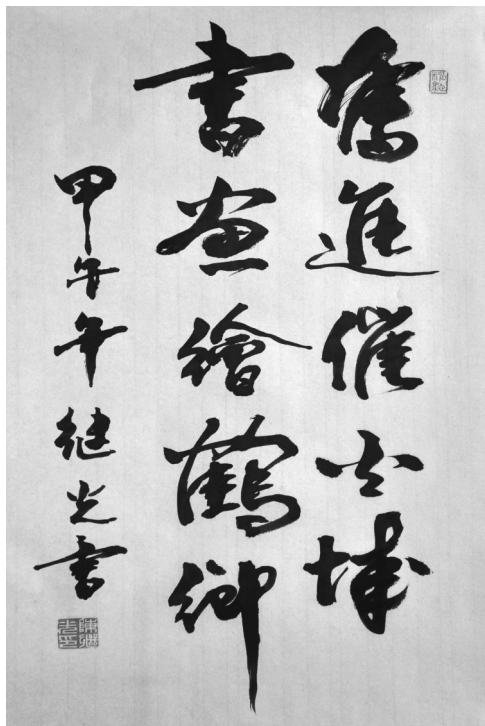 奮進催古城
書画繪鶴鄉
甲午年继光書